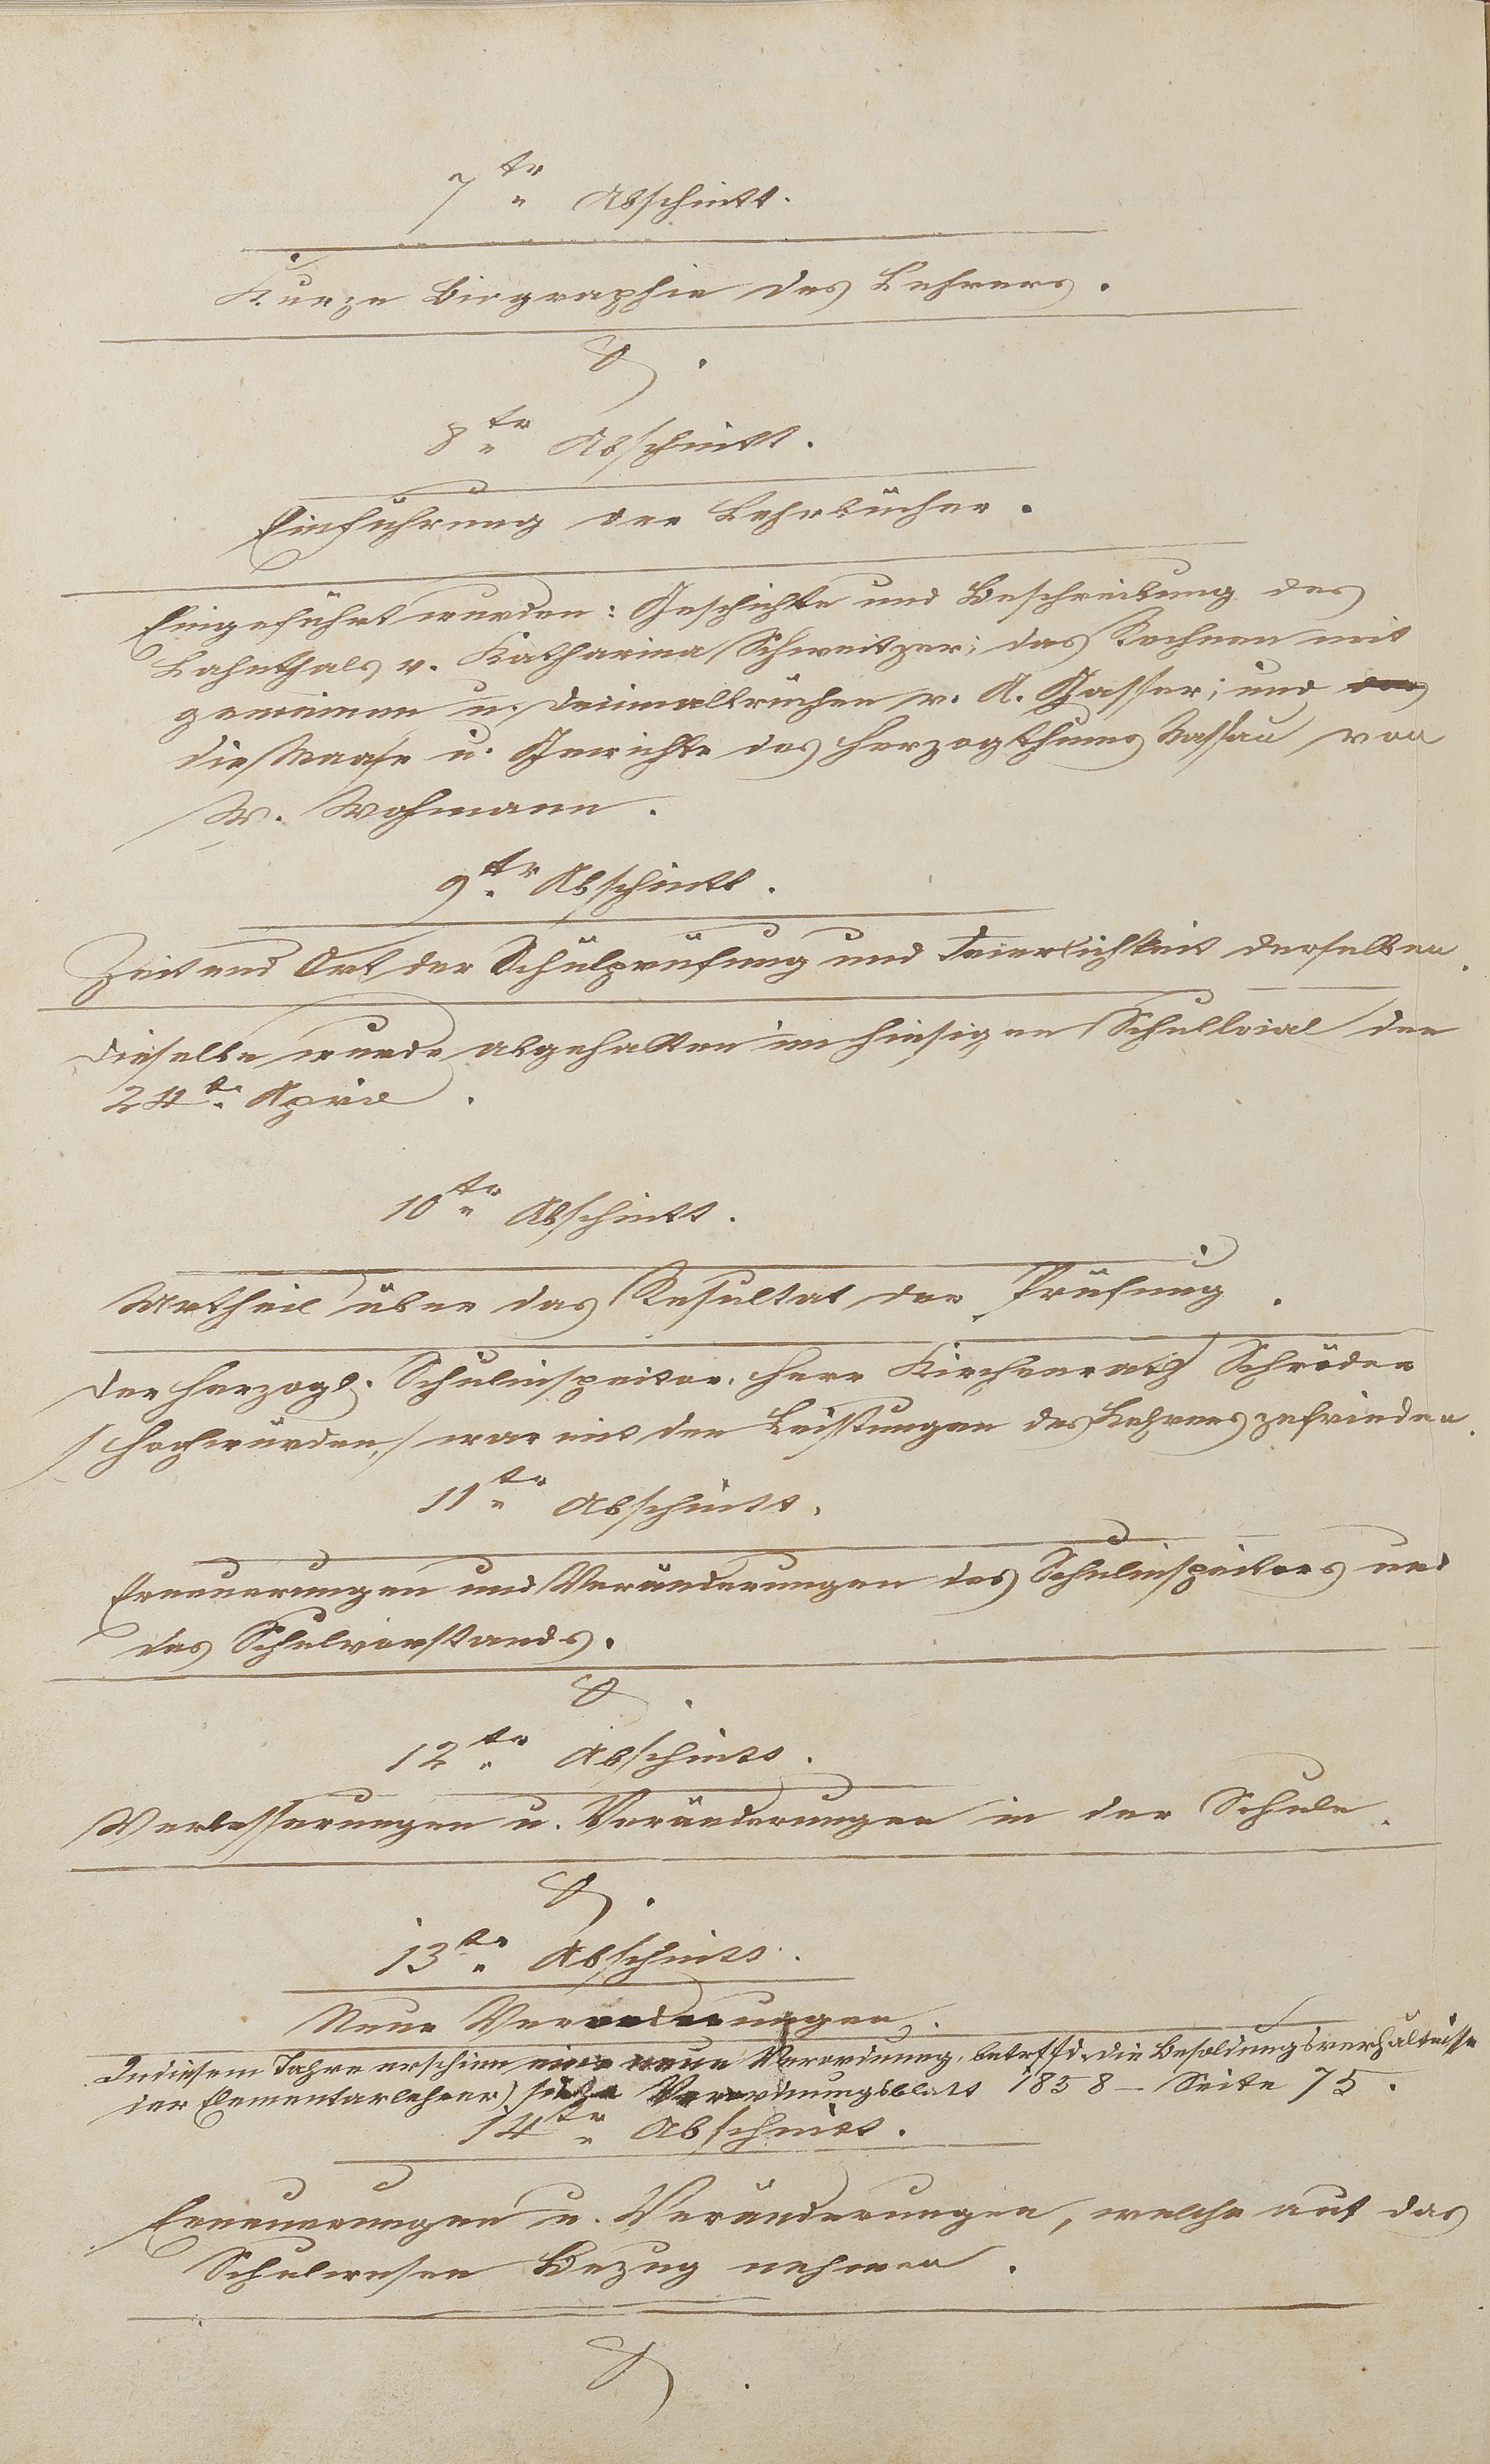 7tr Abschnitt.
Kurze Biographie des Lehrers.
8tr Abschnitt.
Einführung der Lehrbücher.
Eingeführt wurden: Geschichte und Beschreibung des
Lahnthals v. Katharina Schweitzer; das Rechnen mit
gemeinen u. Decimalbrüchen v. A. Gasser; und
die Maase u. Gewichte des Herzogthums Nassau von
W. Wohmann.
9tr Abschnitt.
Zeit und Ort der Schulprüfung und Feierlichkeit derselben.
Dieselbe wurde abgehalten im hiesigen Schullocal den
24te. April.
10tr Abschnitt.
Urtheil über das Resultat der Prüfung.
Der Herzogl. Schulinspector, Herr Kirchenrath Schröder
/Hochwürden,/ war mit den Leistungen des Lehrers zufrieden.
11tr Abschnitt.
Erneuerungen und Veränderungen des Schulinspectors und
des Schulvorstands.
12tr Abschnitt.
Verbesserungen u. Veränderungen in der Schule.
13tr Abschnitt.
Neue Verordnungen.
In diesem Jahre erschien eine neue Verordnung, betrffd. die Besoldungsverhältnisse
der Elementarlehrer) siehe Verordnungsblatt 1858 – Seite 75.
14tr Abschnitt.
Erneuerungen u. Veränderungen, welche auf das
Schulwesen Bezug nehmen.